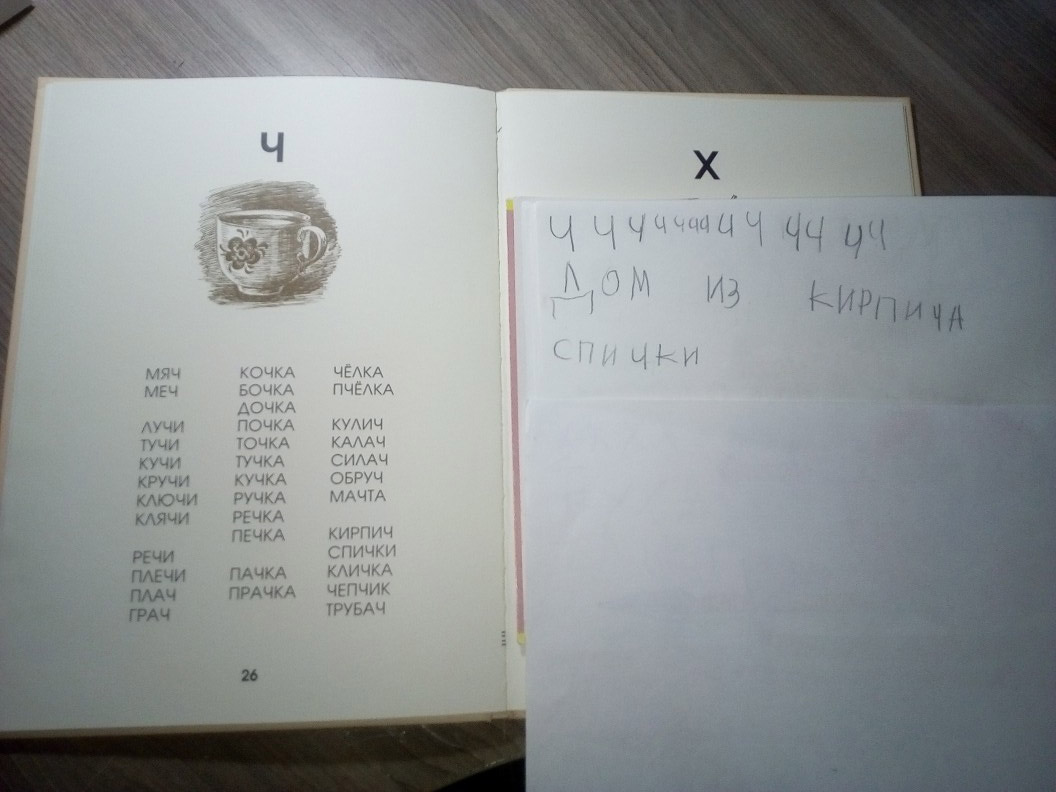 Ч
МЯЧ КОЧКА ЧЁЛКА
МЕЧ БОЧКА ПЧЁЛКА
ДОЧКА
ЛУЧИ ПОЧКА КУЛИЧ
ТУЧИ ТОЧКА КАЛАЧ
КУЧИ ТУЧКА СИЛАЧ
КРУЧИ КУЧКА ОБРУЧ
КЛЮЧИ РУЧКА МАЧТА
КЛЯЧИ РЕЧКА
ПЕЧКА КИРПИЧ
РЕЧИ СПИЧКИ
ПЛЕЧИ ПАЧКА КЛИЧКА
ПЛАЧ ПРАЧКА ЧЕПЧИК
ГРАЧ ТРУБАЧ
26
Х
Ч Ч Ч Ч Ч Ч Ч Ч Ч Ч Ч Ч Ч
ДОМ ИЗ КИРПИЧА
СПИЧКИ